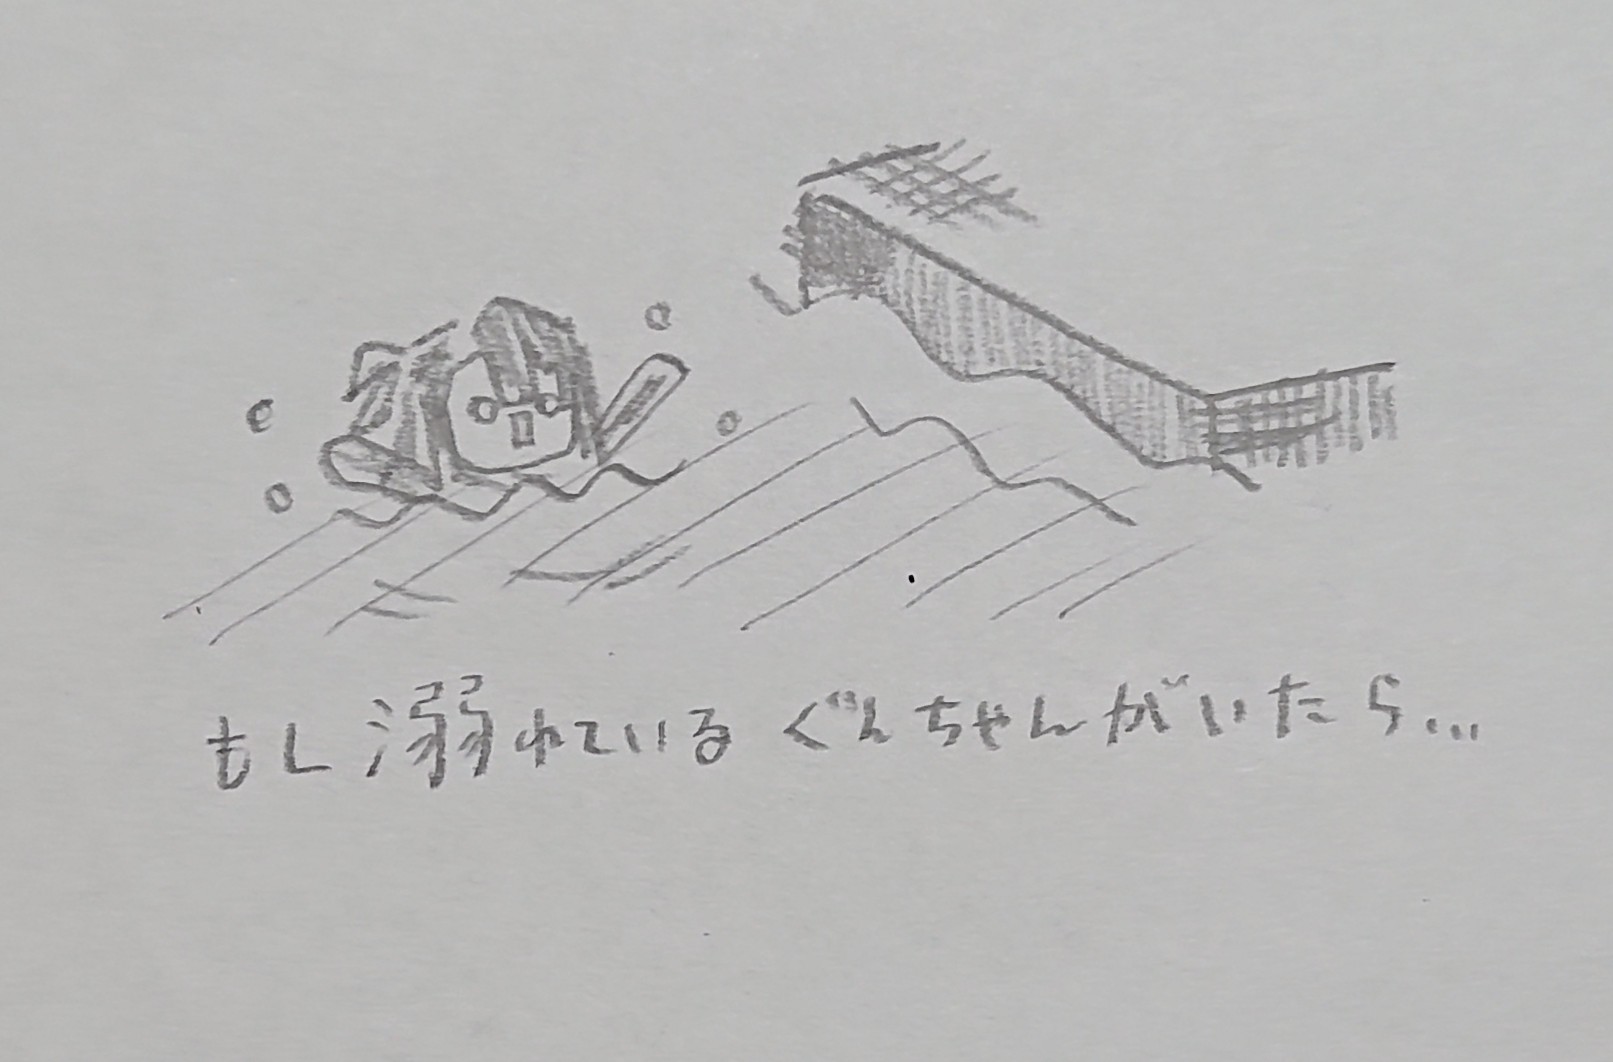 もし溺れているぐんちゃんがいたら...